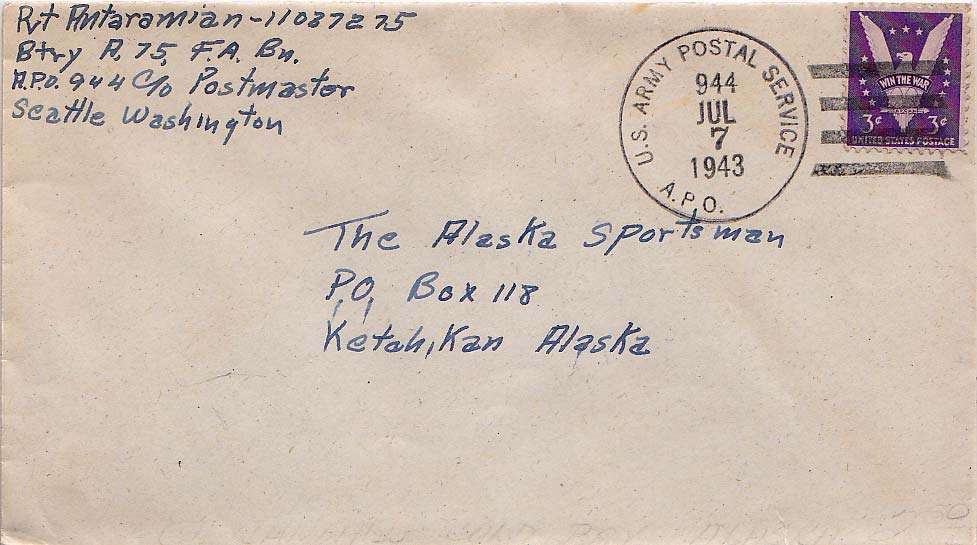 Pvt Antaramian-11037275
Btry A, 75, F.A. Bn.
A.P.O. 944 C/o Postmaster
Seattle Washington
U.S. ARMY POSTAL SERVICE
944
JUL
7
1943
A.P.O.
WIN THE WAR
3¢ 3¢
UNITED STATES POSTAGE
The Alaska Sportsman
P.O. Box 118
Ketchikan Alaska